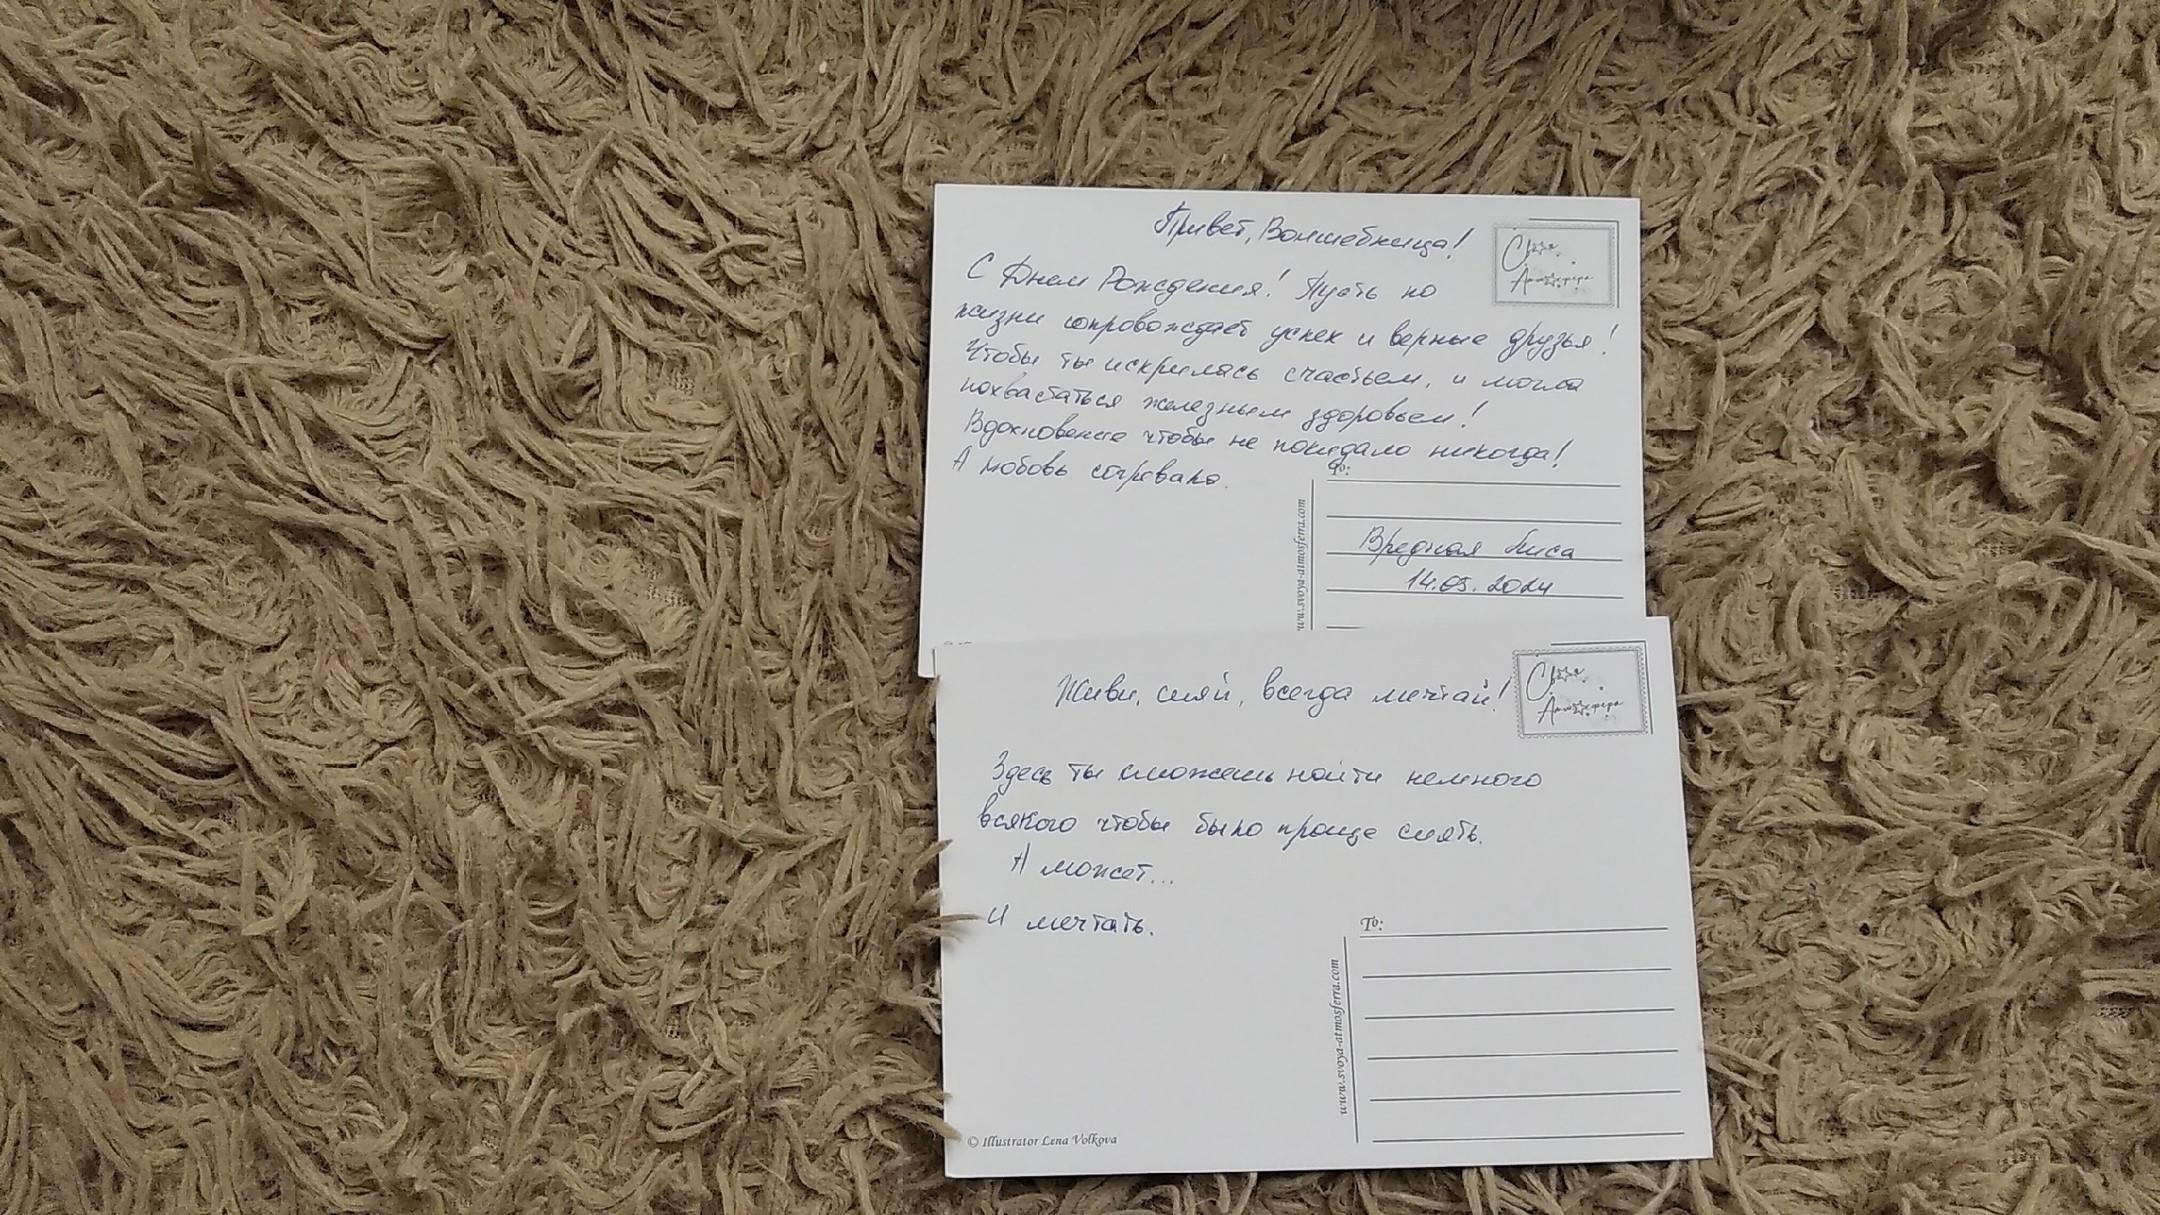 Привет, Волшебница!
С Днем Рождения! Пусть по
жизни сопровождает успех и верные друзья!
Чтобы ты искрилась счастьем, и могла
похвастаться железным здоровьем!
Вдохновение чтобы не покидало никогда!
А любовь согревала.
Своя
Атмосфера
To:
www.svoya-atmosferra.com
Вредная Лиса
14.05.2024
Живи, сияй, всегда мечтай!
Своя
Атмосфера
Здесь ты сможешь найти немного
всякого чтобы было проще сиять.
А может...
И мечтать.
To:
www.svoya-atmosferra.com
© Illustrator Lena Volkova